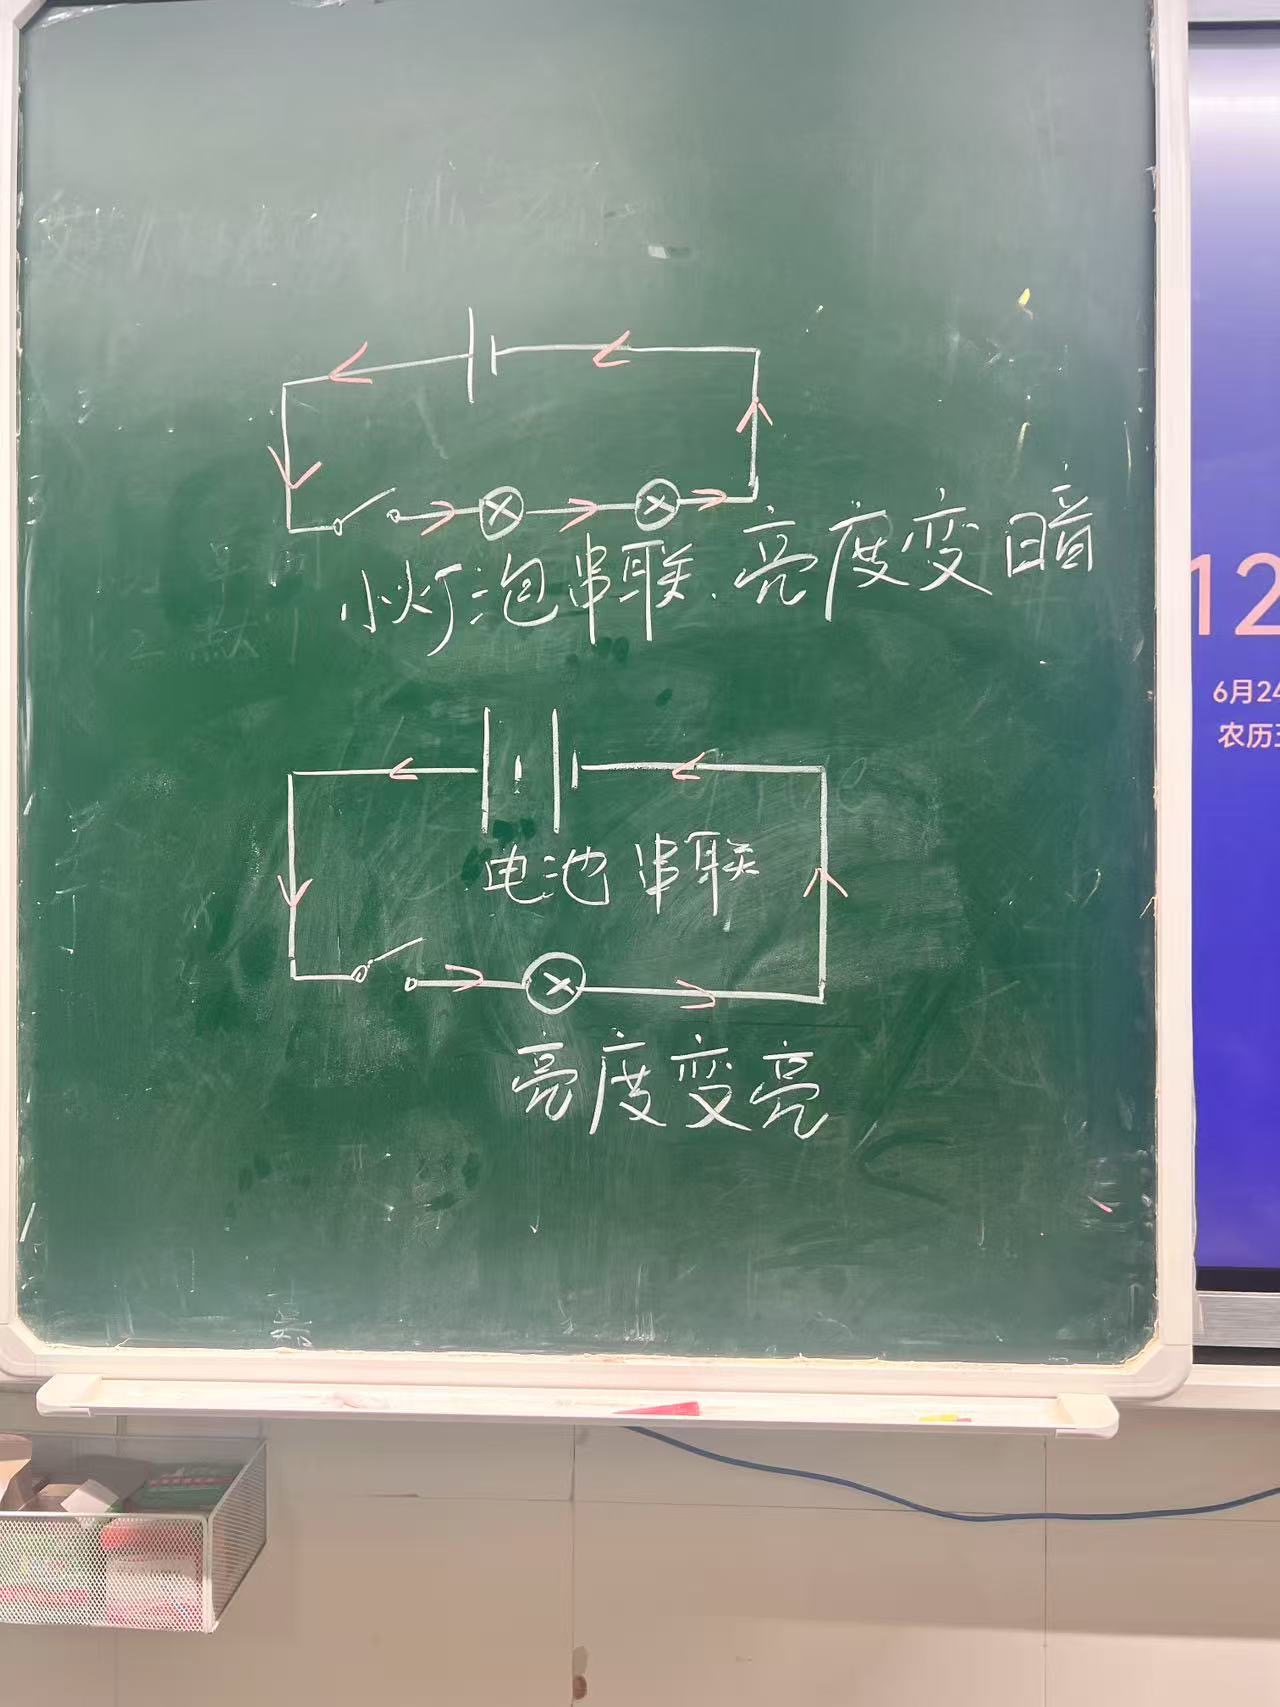 小灯泡串联.亮度变暗
电池串联
亮度变亮
12
6月24
农历